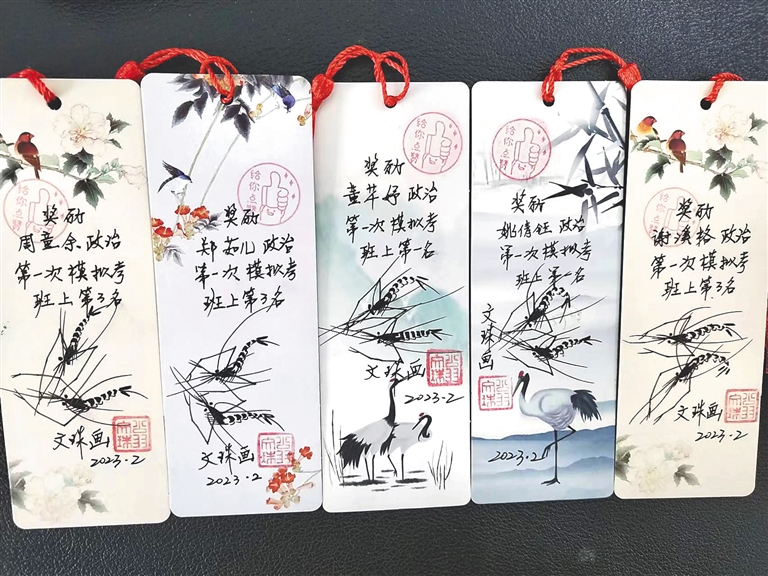 给你点赞
奖励
周余政治
第一次模拟考
班上第3名
文珠画
2023.2
给你点赞
奖励
郑茹儿政治
第一次模拟考
班上第3名
文珠画
2023.2
给你点赞
奖励
童芊妤政治
第一次模拟考
班上第一名
文珠画
2023.2
给你点赞
奖励
姚倩钰政治
第一次模拟考
班上第一名
文珠画
2023.2
给你点赞
奖励
谢溪格政治
第一次模拟考
班上第3名
文珠画
2023.2